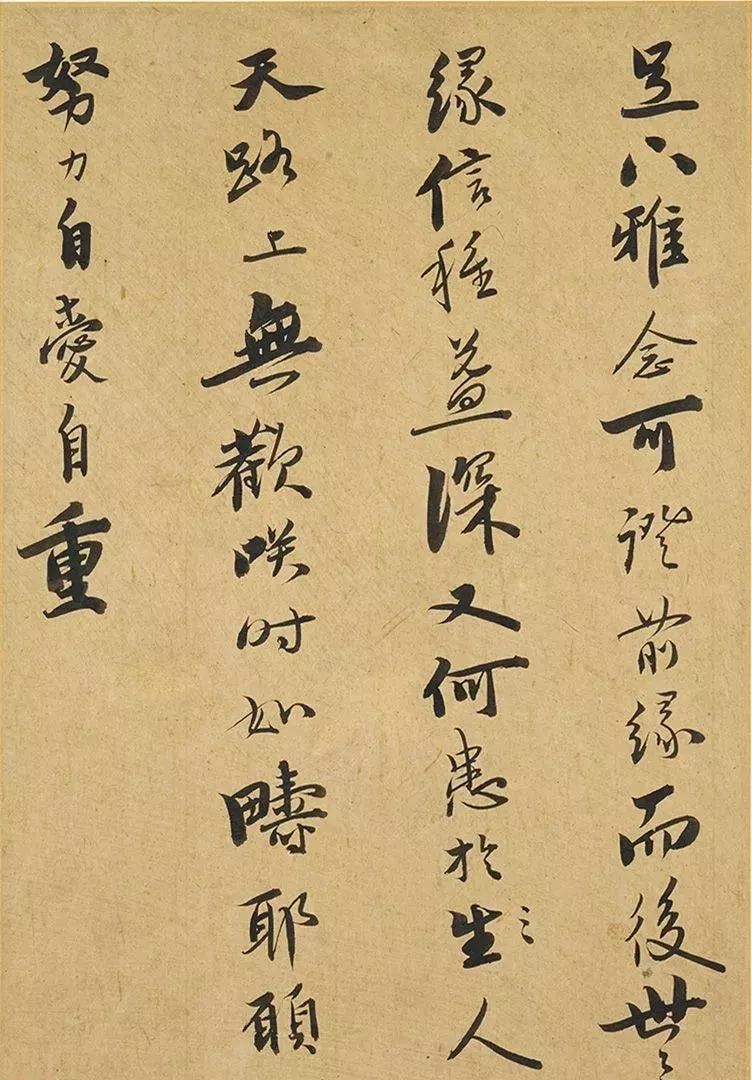 足下雅念可證前緣而後世之
緣信種益深又何患於生々人
天路上無歡咲時如疇耶願
努力自愛自重